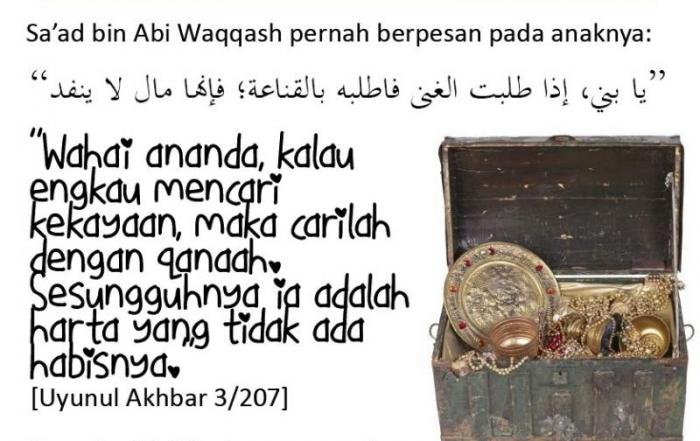 Sa'ad bin Abi Waqqash pernah berpesan pada anaknya:
”يا بني، إذا طلبت الغنى فاطلبه بالقناعة؛ فإنها مال لا ينفد“
"Wahai ananda, kalau
engkau mencari
kekayaan, maka carilah
dengan qanaah.
Sesungguhnya ia adalah
harta yang tidak ada
habisnya.
[Uyunul Akhbar 3/207]